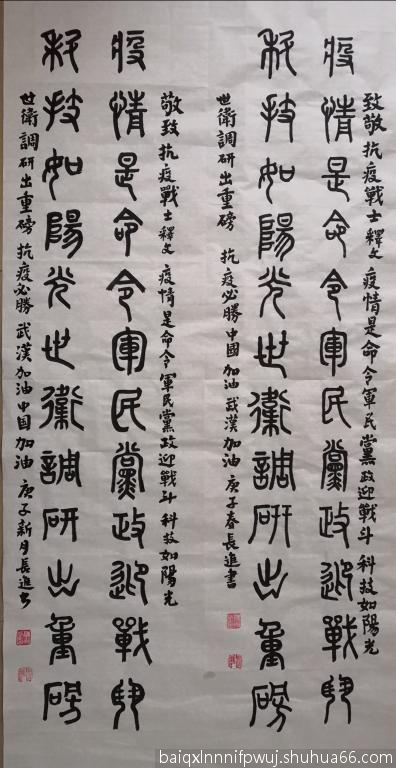 致敬抗疫戰士釋文 疫情是命令軍民黨政迎戰斗 科技如陽光
疫情是命令軍民黨政迎戰鬥
科技如陽光世衛調研出重磅
世衛調研出重磅 抗疫必勝中國加油武漢加油 庚子春長進書
敬致抗疫戰士釋文 疫情是命令軍民黨政迎戰斗 科技如陽光
疫情是命令軍民黨政迎戰鬥
科技如陽光世衛調研出重磅
世衛調研出重磅 抗疫必勝 武漢加油中国加油 庚子新月長進书
baiqxlnnnifpwuj.shuhua66.com